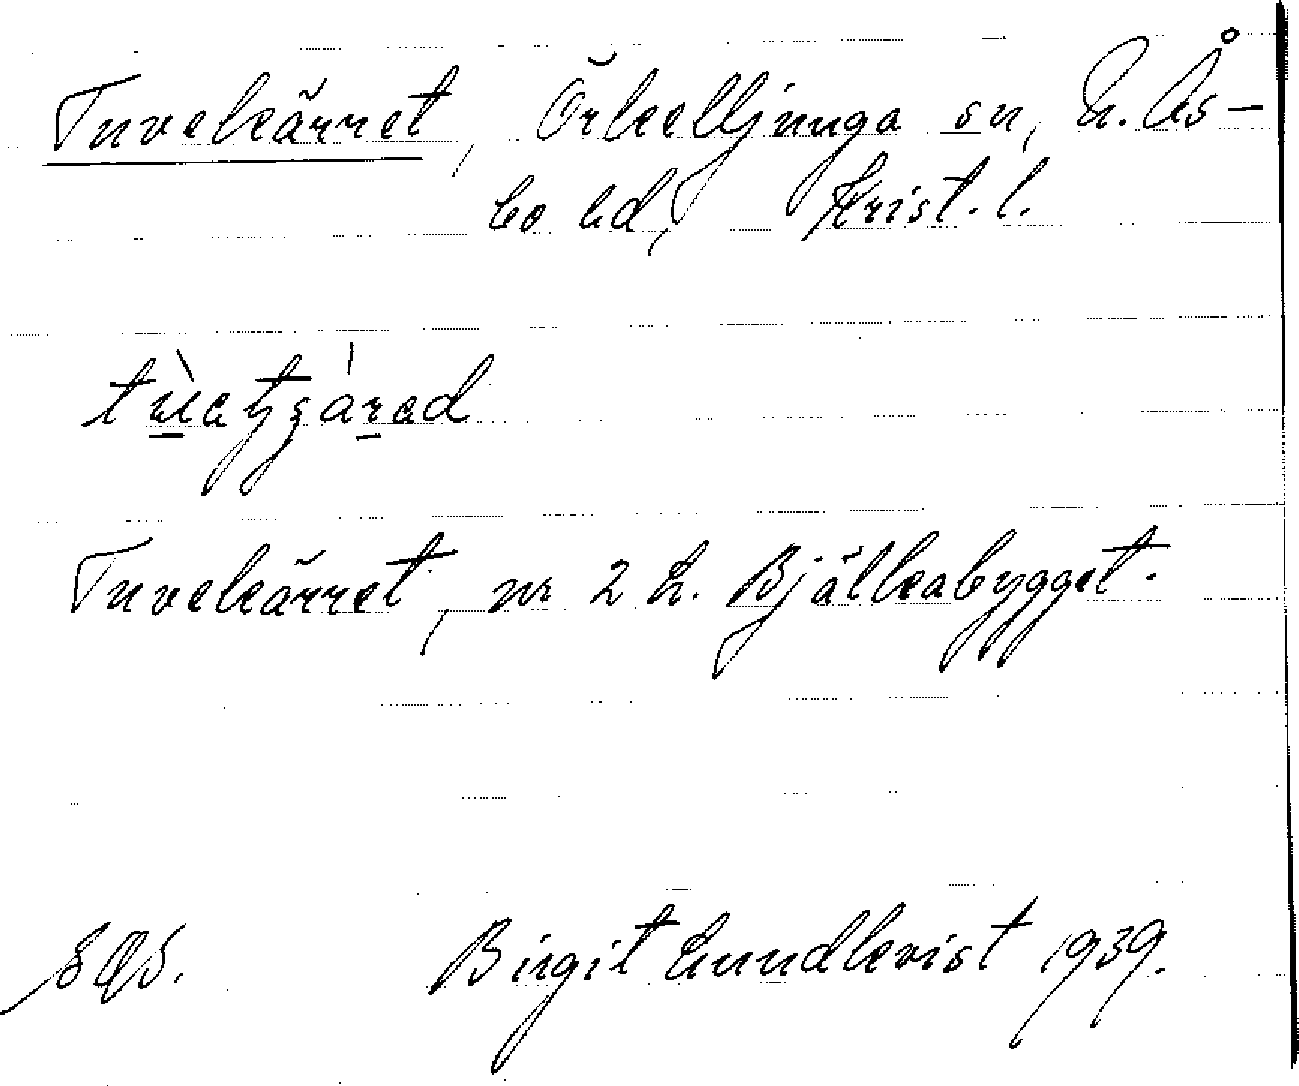 Tuvekärret, Örkelljunga sn, N. Ås-
bo hd, Krist. l.
Tuvekärret, nr 2 L. Bjälkabygget.
Birgit Lundkvist 1939.